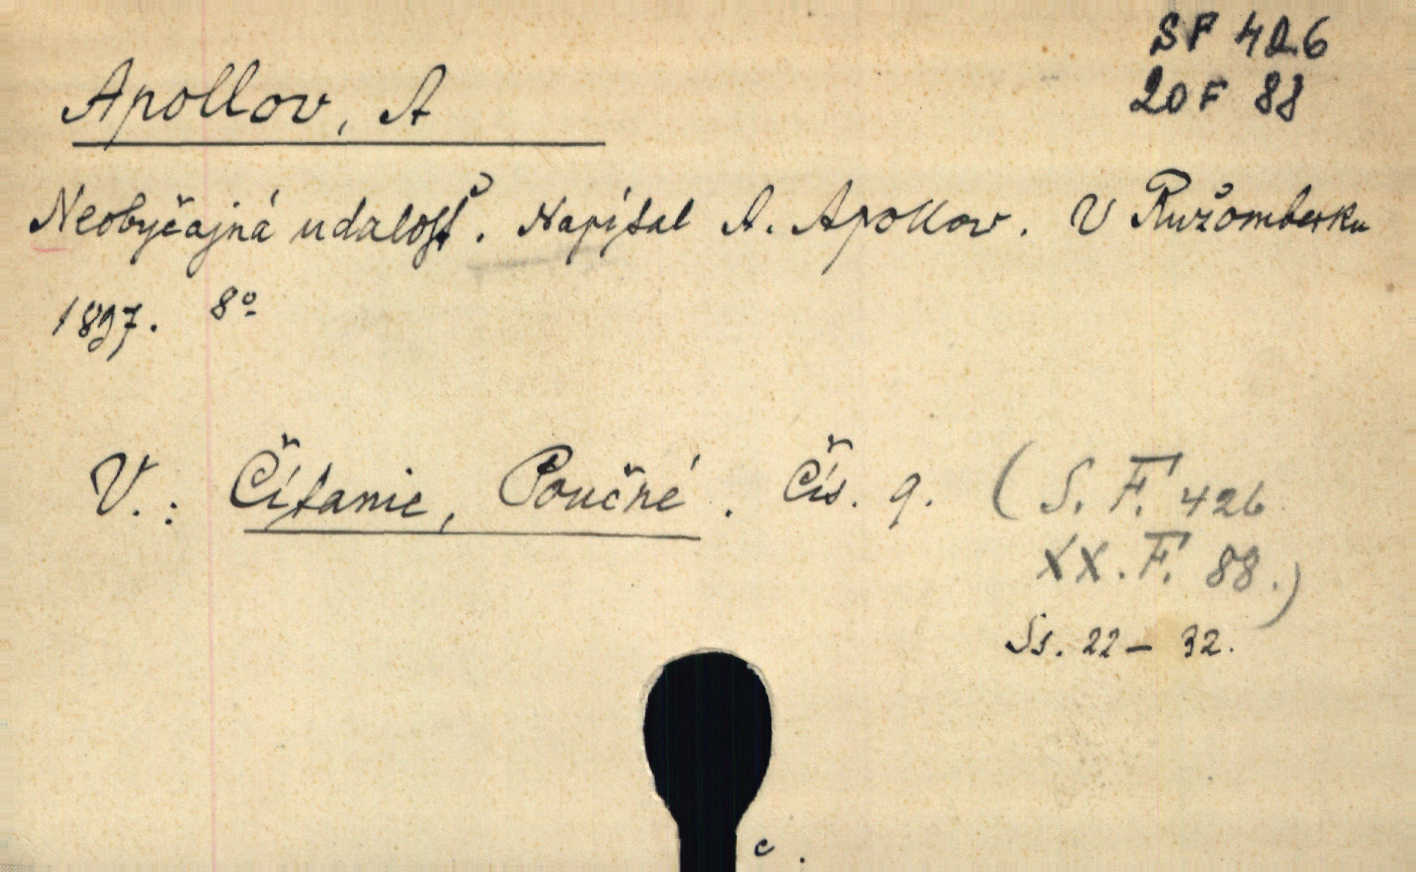 SF 426
20 F 88
Apollov, A
Neobyčajná udalosť. Napísal A. Apollov. V Ružomberku
1897. 8º
V.: Čítanie, Poučné. Čís. 9. (S. F. 426
XX. F. 88.)
Ss. 22 – 32.
c.